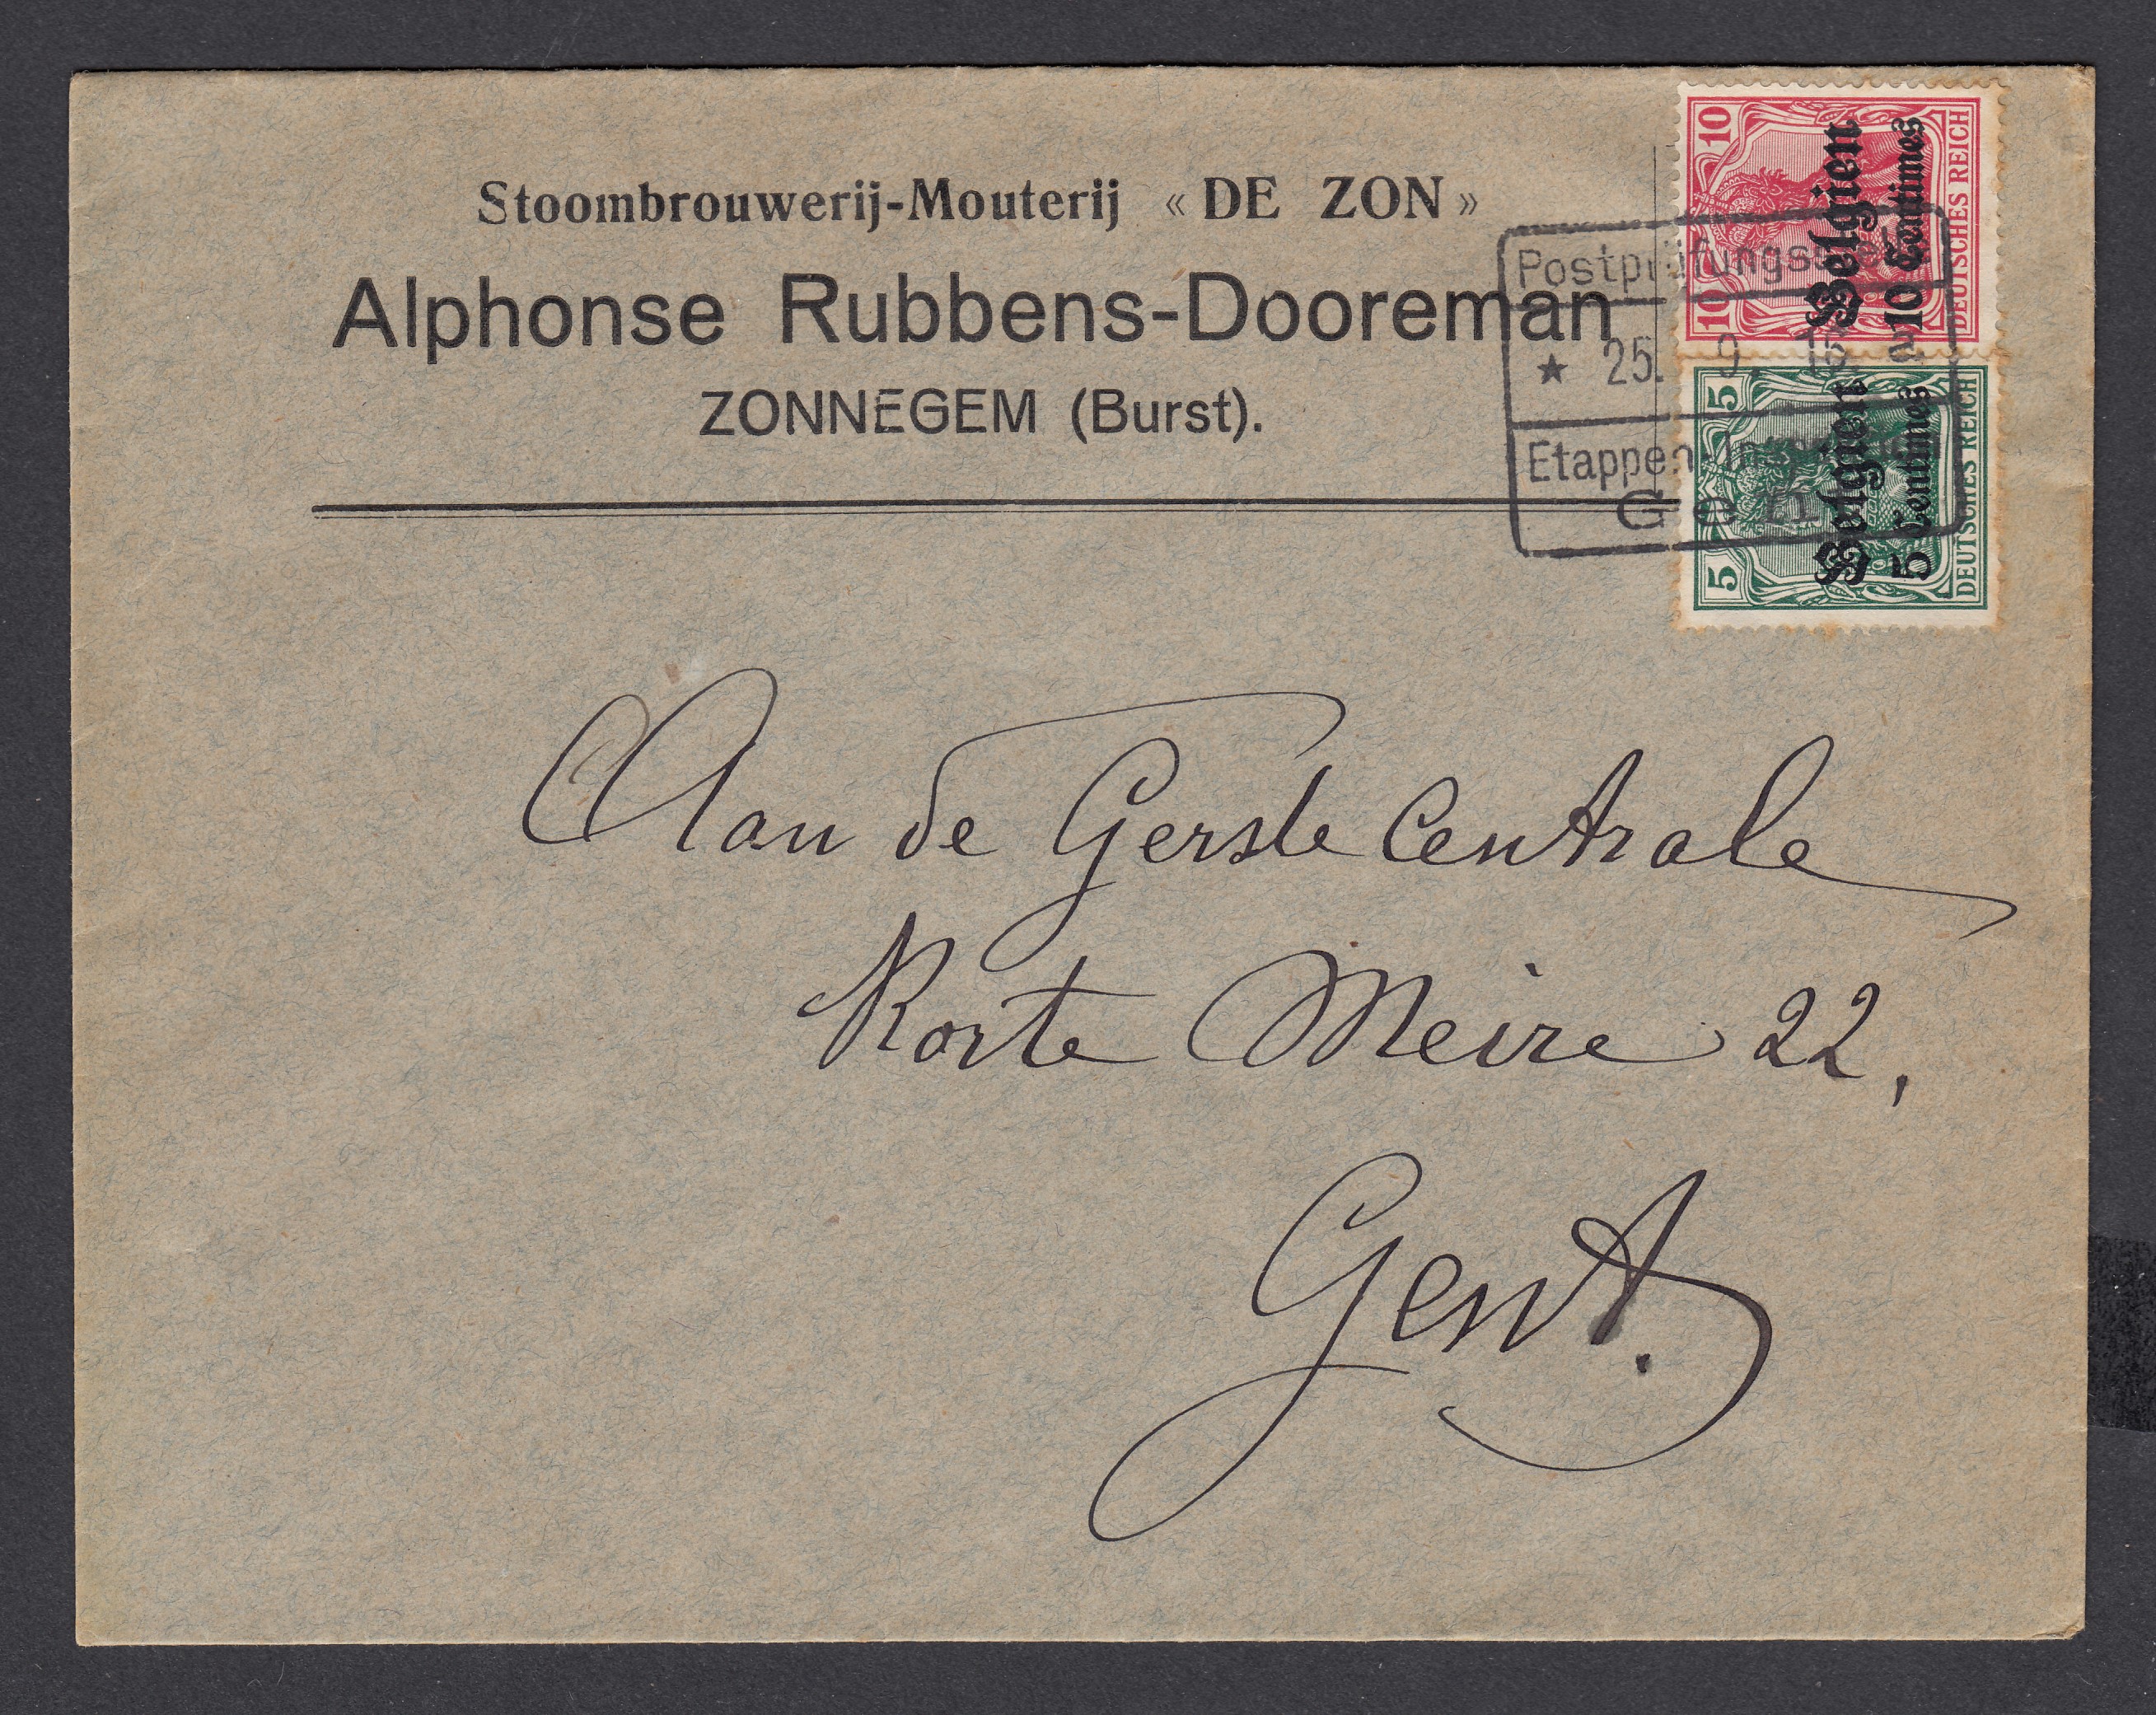 Stoombrouwerij-Mouterij « DE ZON »
Alphonse Rubbens-Dooreman
ZONNEGEM (Burst).
10 10
Belgien
10 Centimes
DEUTSCHES REICH
5 5
Belgien
5 Centimes
DEUTSCHES REICH
★ 25. 9.
Etappen
Gent
Aan de Gerste Centrale
Korte Meire 22,
Gent.